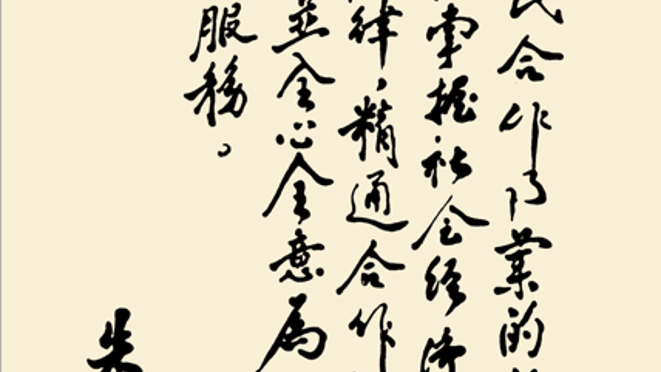 民合作业的
掌握社会経济
律，精通合作
並全心全意為
服務。
朱